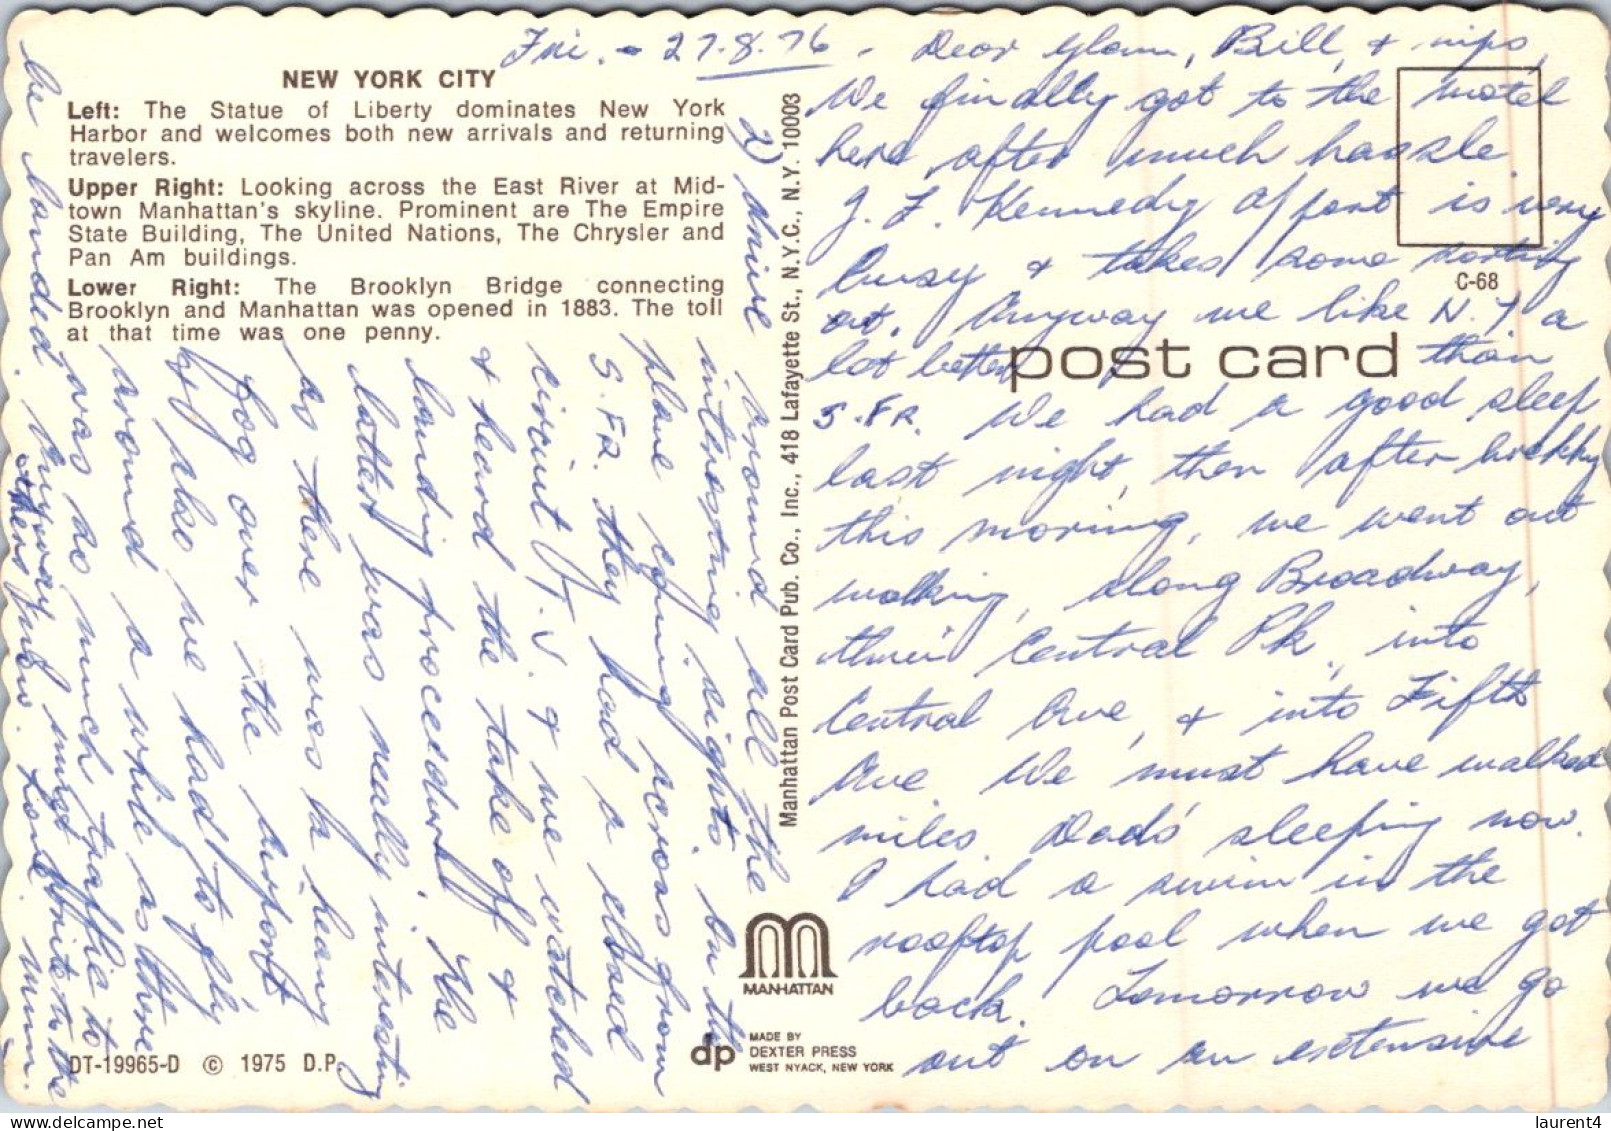 NEW YORK CITY
Left: The Statue of Liberty dominates New York
Harbor and welcomes both new arrivals and returning
travelers.
Upper Right: Looking across the East River at Mid-
town Manhattan's skyline. Prominent are The Empire
State Building, The United Nations, The Chrysler and
Pan Am buildings.
Lower Right: The Brooklyn Bridge connecting
Brooklyn and Manhattan was opened in 1883. The toll
at that time was one penny.
Manhattan Post Card Pub. Co., Inc., 418 Lafayette St., N.Y.C., N.Y. 10003
C-68
post card
MANHATTAN
dp
MADE BY
DEXTER PRESS
WEST NYACK, NEW YORK
DT-19965-D © 1975 D.P.
Fri. - 27.8.76.
Dear Bill, &
We finally got to the motel
here after much hassle
J. F. Kennedy is very
busy & takes some sorting
out. Anyway we like N.Y a
lot better than
S.FR. We had a good sleep
last night, then after brekky
this morning, we went out
walking, along Broadway,
Central Pk., into
Central Ave, & into Fifth
Ave We must have walked
miles. Dad's sleeping now.
I had a swim in the
rooftop pool when we got
back. Tomorrow we go
out on an extensive
2) drive
around all the
interesting sights. On the
plane coming across from
S.FR. they had a closed
circuit T.V. & we watched
& heard the take off &
landing procedure. The
latter was really interesting
as there was a heavy
fog over the airport
also we had to fly
around a while as there
was so much traffic to
be landed. Anyway must write to the
others now. Love Mum.
laurent4